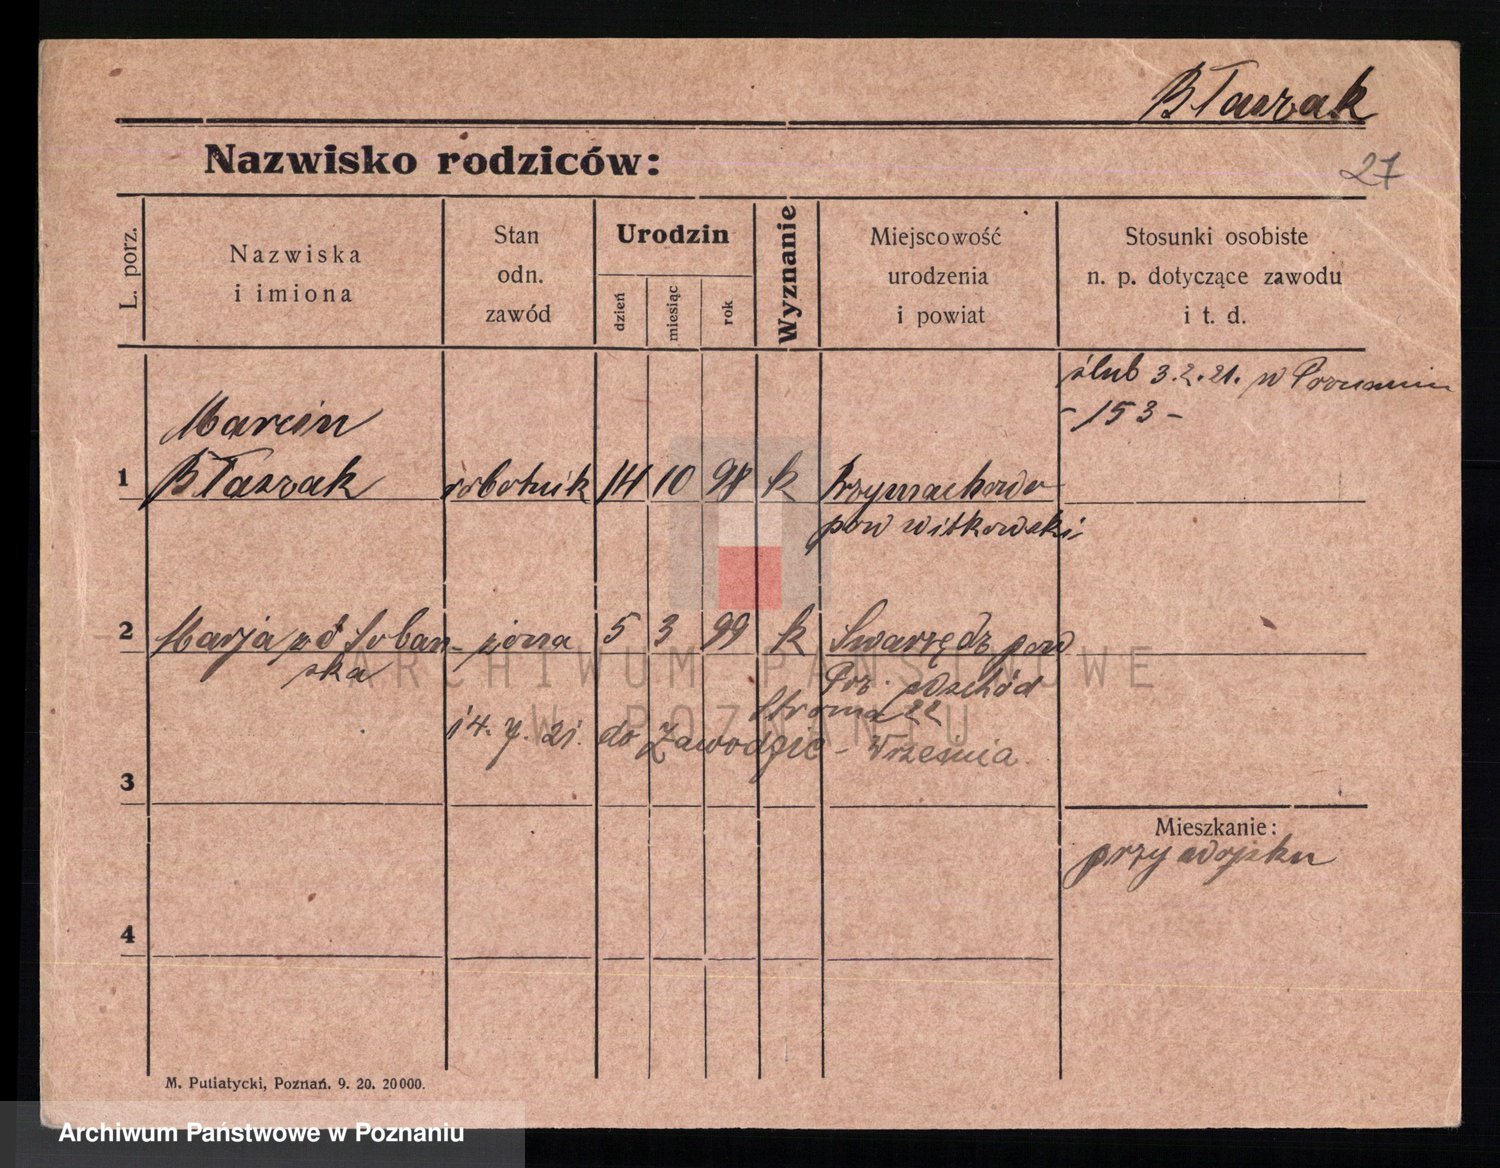 Błaszak
Nazwisko rodziców:
27
L. porz.
Nazwiska
i imiona
Stan
odn.
zawód
Urodzin
dzień
miesiąc
rok
Wyznanie
Miejscowość
urodzenia
i powiat
Stosunki osobiste
n. p. dotyczące zawodu
i t. d.
ślub 3.2.21. w Poznaniu
- 153 -
Marcin
1 Błaszak robotnik 14 10 98 k
pow witkowski
2 Marja żona 5 3 99 k Swarzędz pow
ska
Poz. wschód
Stroma 22
14. 7. 21. do Zawodzie - Września
3
Mieszkanie:
przy wojsku
4
M. Putiatycki, Poznań. 9. 20. 20000.
ARCHIWUM PAŃSTWOWE
W POZNANIU
Archiwum Państwowe w Poznaniu